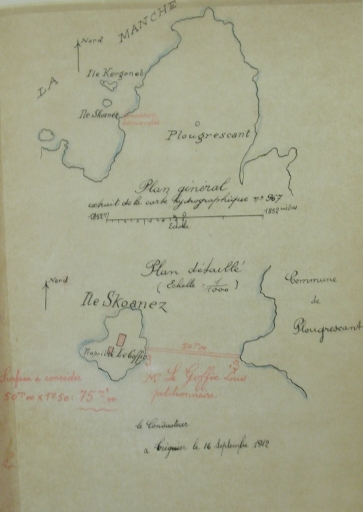 LA MANCHE
Nord
Ile Kergonet
Ile Skoanez
Plougrescant
Plan général
extrait de la carte hydrographique nº 967
Echelle
Plan détaillé
(Echelle 1/1000)
Nord
Commune
de
Plougrescant
Ile Skoanez
Le Goffic
50m00
Surface à concéder
50m00 x 1m50 = 75
Mr Le Goffic Louis
pétitionnaire
le Conducteur
à Tréguier le 16 septembre 1912